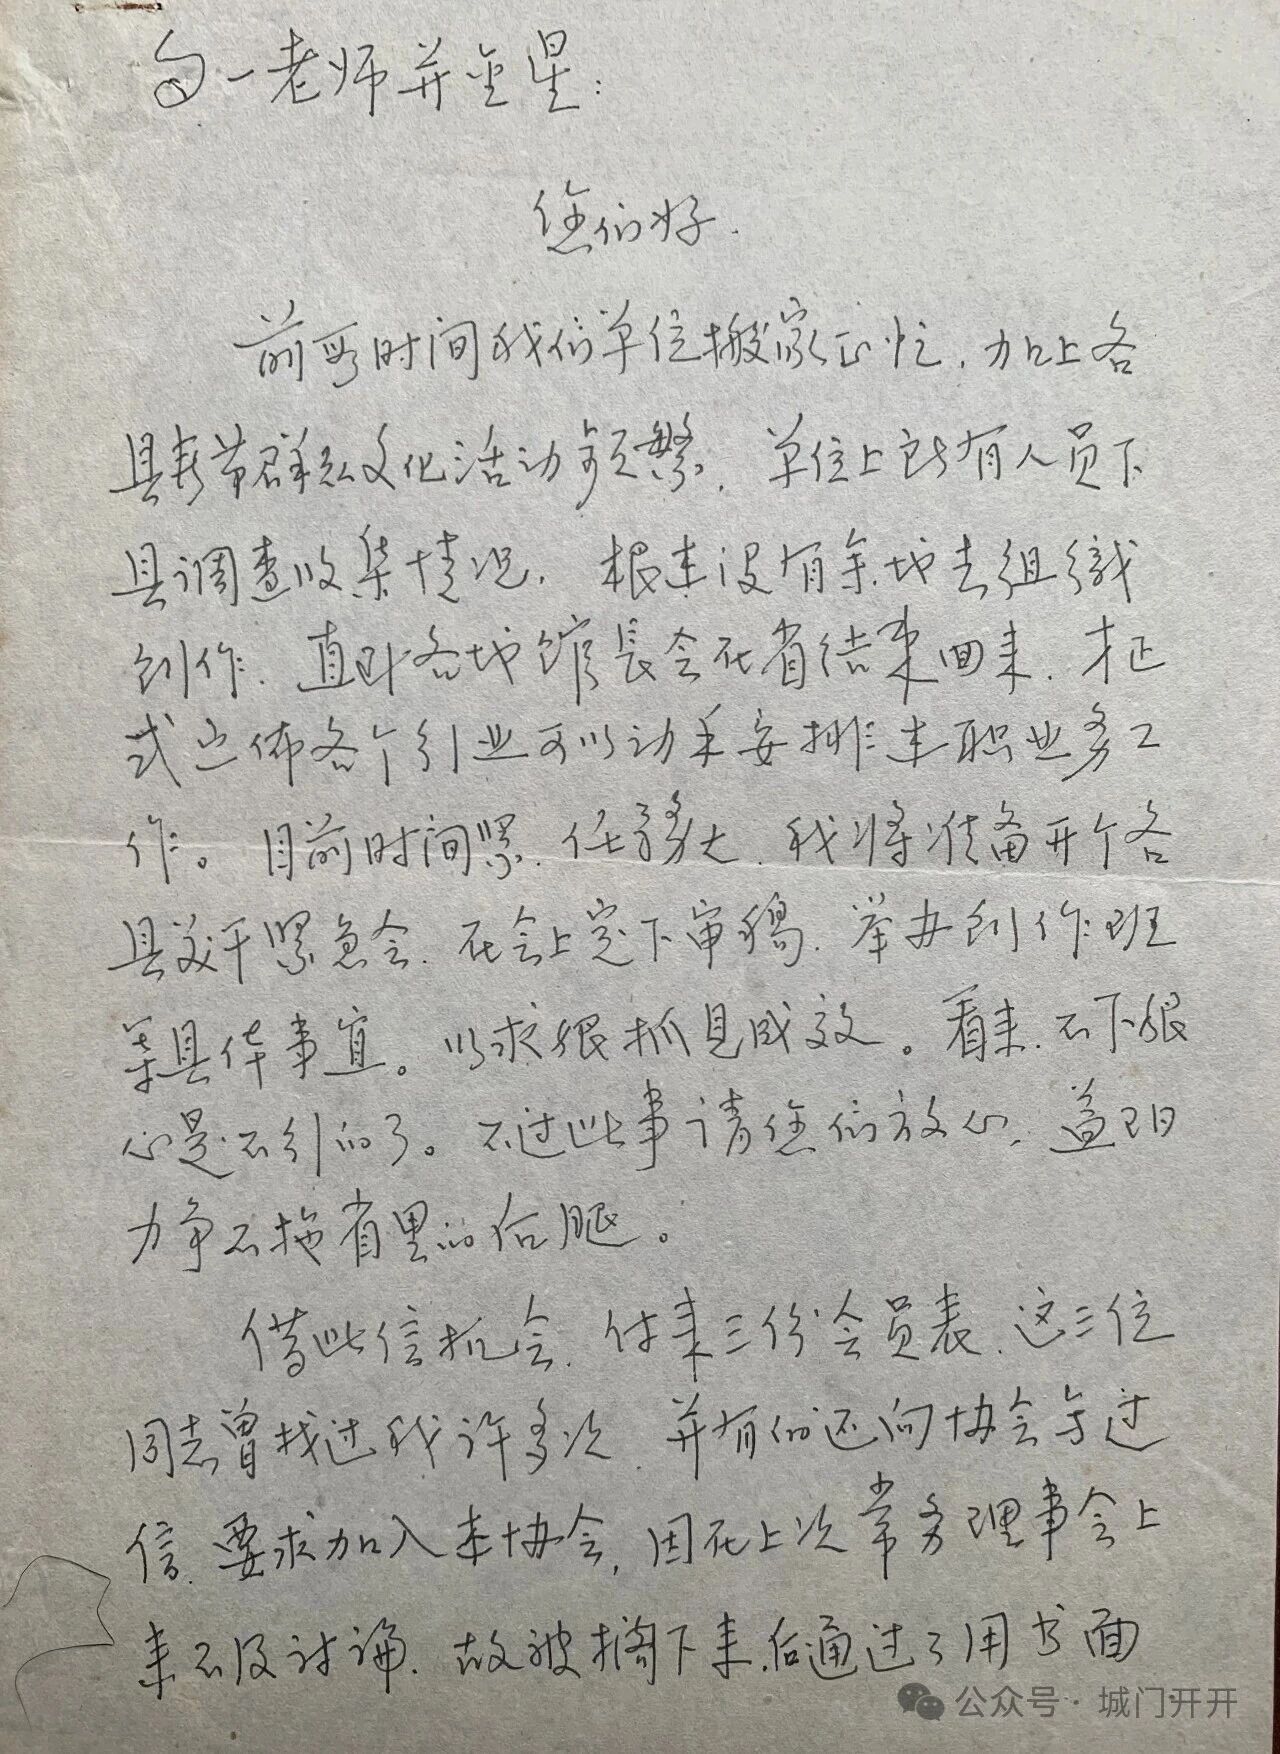 一老师并金星：
您们好.
前段时间我们单位搬家正忙，加上各
县春节群众文化活动频繁，单位上所有人员下
县调查收集情况，根本没有余地去组织
创作，直到各地馆长会在省结束回来，才正
式宣佈各个行业可以动手安排本职业务工
作。目前时间紧，任务大，我将准备开个各
县美干紧急会，在会上定下审稿，举办创作班
等具体事宜。以求狠抓见成效。看来，不下狠
心是不行的了。不过此事请您们放心，
力争不拖省里的后腿。
借此信机会，付来三份会员表，这三位
同志曾找过我许多次，并有的还向协会写过
信，要求加入本协会，因在上次常务理事会上
来不及讨论，故被搁下来，后通过了用书面
公众号·城门开开